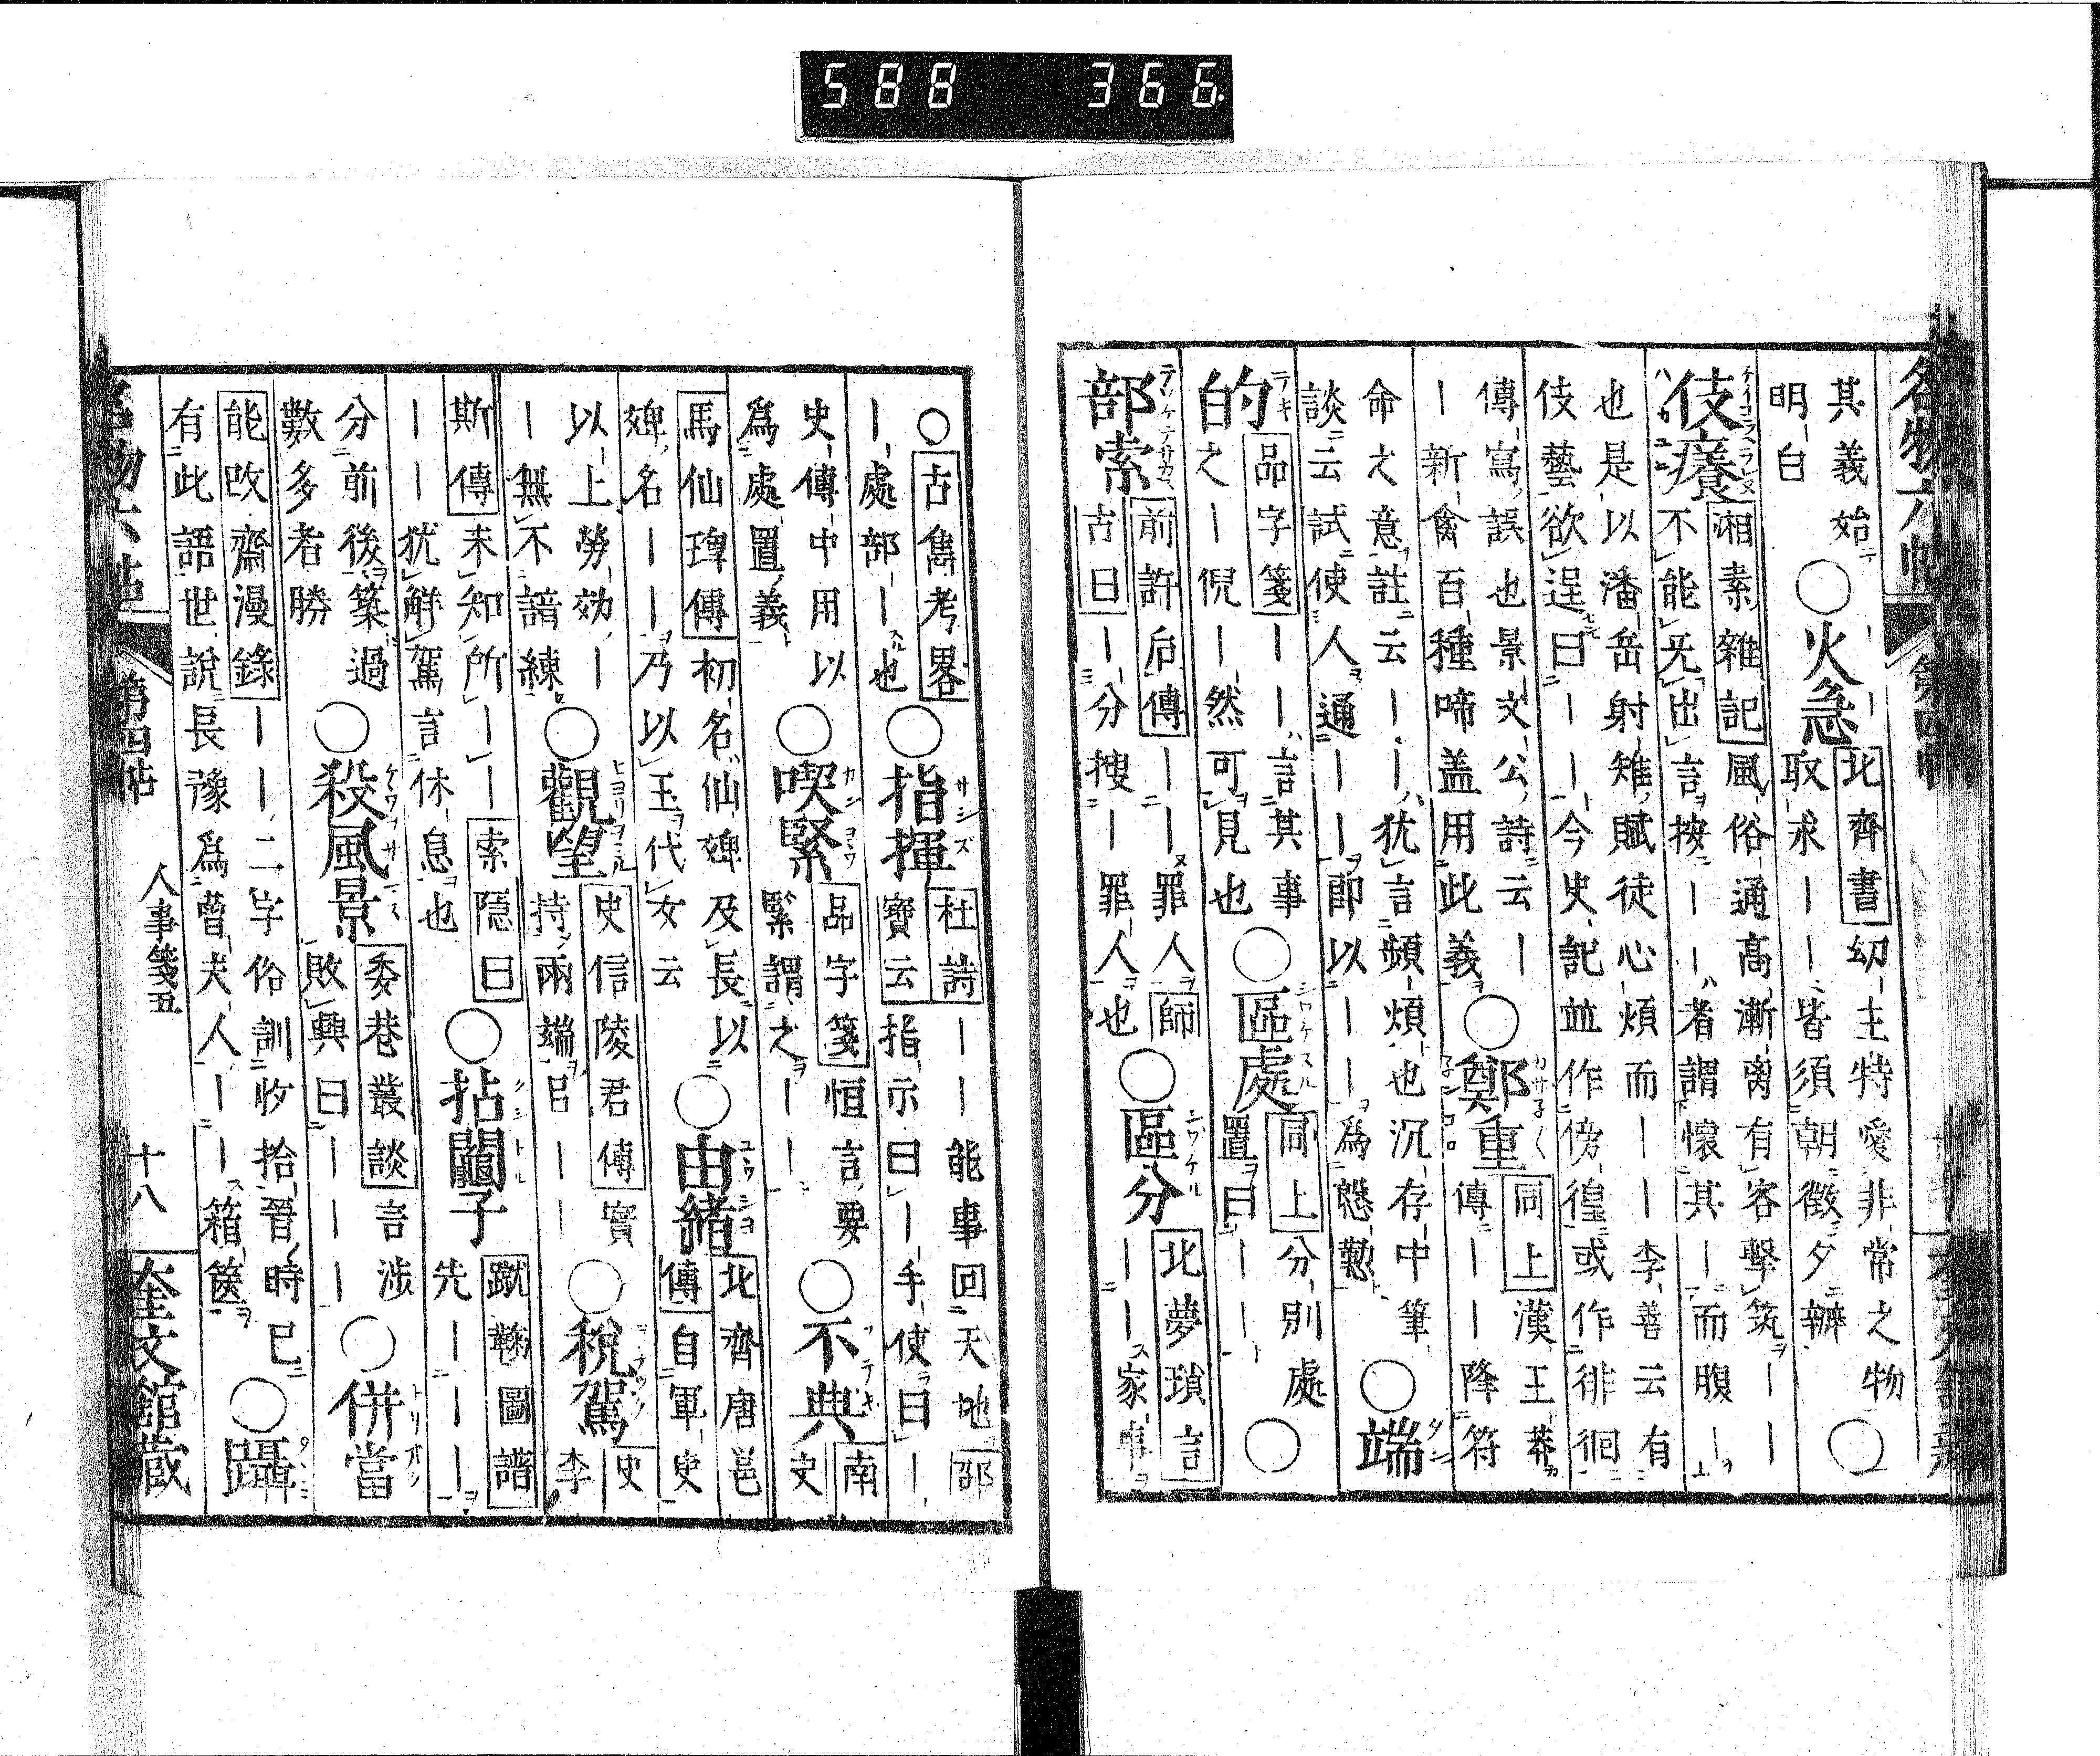 588 366
名物六帖 第四帖
其義始
明白
○火急
北齊書幼主特愛非常之物
取求ーー皆須朝徵夕辦
○
伎癢
湘素雜記風俗通高漸离有客擊筑ーー
不能无出言按ーー者謂懷其ー而腹ー
也是以潘岳射雉賦徒心煩而ーー李善云有
伎藝欲逞曰ーー今史記並作傍徨或作徘徊
傳寫誤也景文公詩云ー
ー新禽百種啼盖用此義
○鄭重
同上漢王莽
傳ーー降符
命之意註云ーー犹言頻煩也沉存中筆
談云試使人通ーー即以ーー為慇懃
○端
的
品字箋ーー言其事
之ー倪ー然可見也
○區處
同上分別處
置曰ーー
○
部索
前許后傳ーー罪人師
古曰ー分搜ー罪人也
○區分
北夢瑣言
ーー家事
○古雋考畧
ー處部ー也
○指揮
杜詩ーー能事回天地邵
寶云指示曰ー手使曰ー
史傳中用以
爲處置義
○喫緊
品字箋恒言要
緊謂之ーー
○不典
南
史
馬仙琕傳初名仙婢及長以
婢名ーー乃以玉代女云
○由緒
北齊唐邕
傳自軍史
以上勞効ー
ー無不諳練
○觀望
史信陵君傳實
持兩端ーー
○稅駕
史
李
斯傳未知所ーー索隱曰
ーー犹解駕言休息也
○拈鬮子
蹴鞠圖譜
先ーーー
分前後築過
數多者勝
○殺風景
委巷叢談言涉
敗興曰ーーー
○併當
能改齋漫錄ーー二字俗訓收拾晉時已
有此語世說長豫爲曹夫人ーー箱篋
○躡
名物六帖 第四帖 人事箋五 十八 奎文館藏